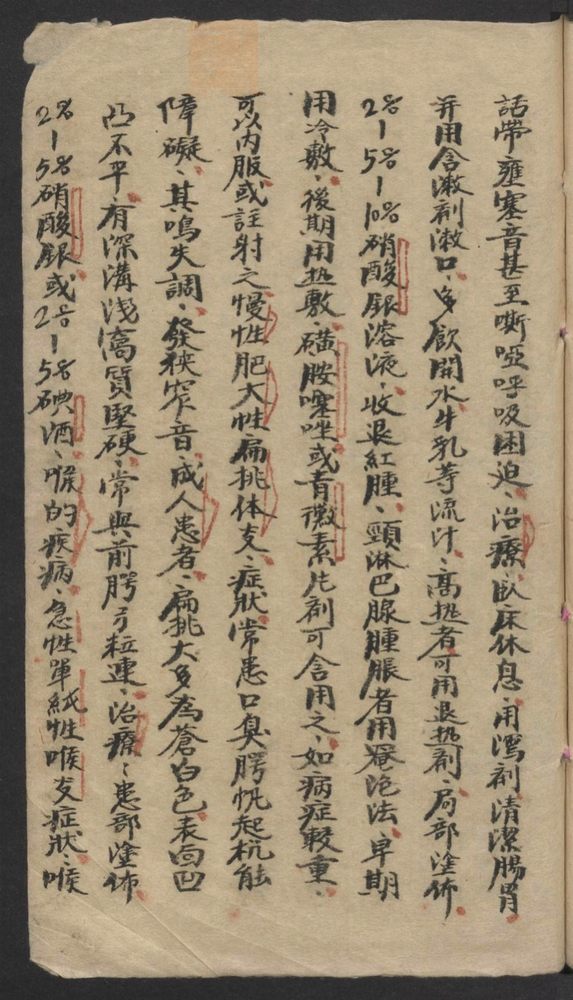 話帶壅塞音甚至嘶啞呼吸困迫、治療、臥床休息、用瀉剤清潔腸胃
并用含漱剤漱口、多飲開水牛乳等流汁、高热者可用退热剤、局部塗佈
2%—5%—10%硝酸銀溶液、收退紅腫、頸淋巴腺腫脹者用罨法、早期
用冷敷、後期用热敷、磺胺噻唑或青黴素片剤可含用之、如病症較重、
可以内服或註射之、慢性肥大性扁挑体炎、症狀常患口臭腭帆起杭能
障礙、其鳴失調、發狹窄音、成人患者、扁挑大多為蒼白色、表面凹
凸不平、有深溝浅窩質堅硬、常與前腭弓粒連、治療、患部塗佈、
2%—5%硝酸銀或2%—5%碘酒、喉的疾病、急性單純性喉炎症狀、喉